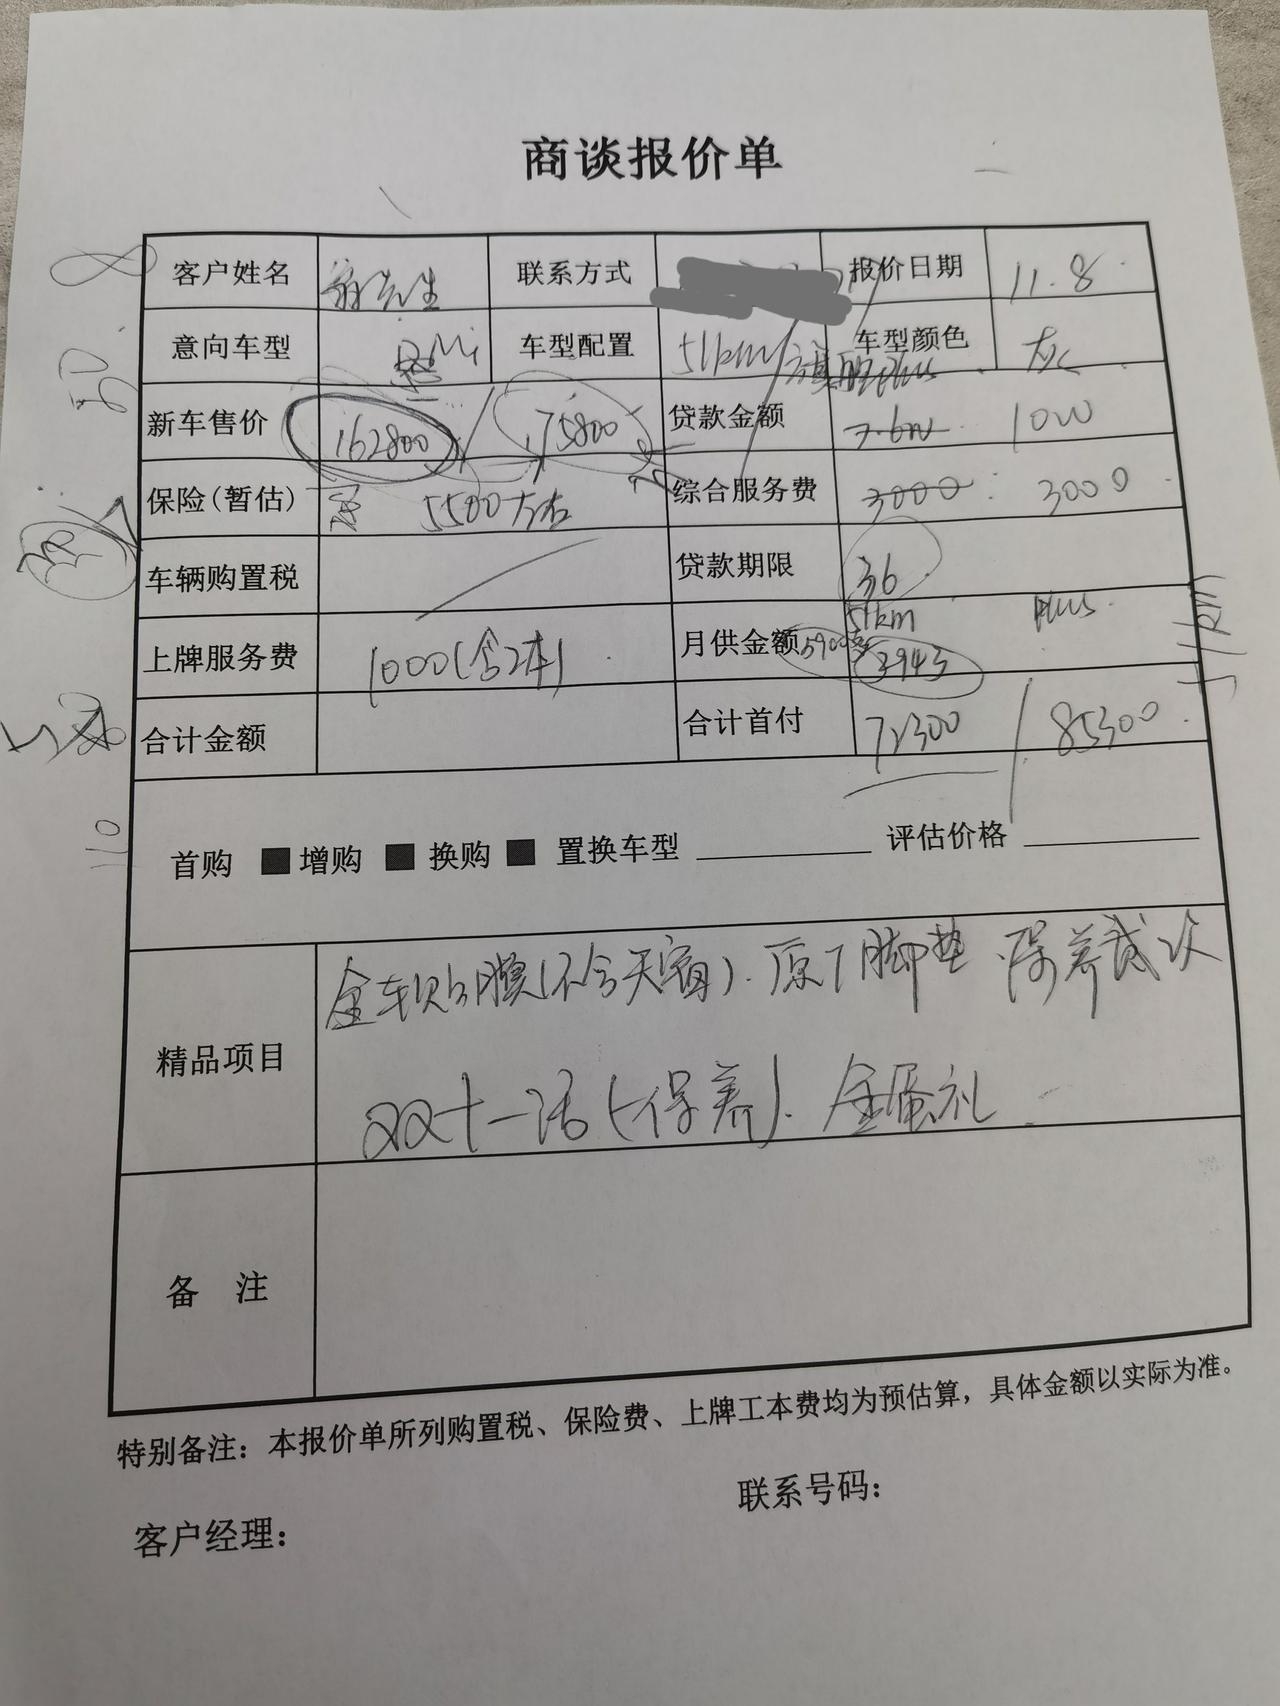 商谈报价单
客户姓名 先生 联系方式 报价日期 11.8
意向车型 DMi 车型配置 51km/旗舰plus 车型颜色 灰
新车售价 162800 / 175800 贷款金额 7.6W 10W
保险(暂估) 5500左右 综合服务费 3000 3000
车辆购置税 贷款期限 36
51km plus
上牌服务费 1000(含2本) 月供金额 3943
合计金额 合计首付 72300 / 85300
110
首购 ■增购 ■换购 ■ 置换车型 评估价格
精品项目
全车贴膜(不含天窗). 原厂脚垫 保养贰次
双十一活(保养). 金蛋礼
备 注
特别备注：本报价单所列购置税、保险费、上牌工本费均为预估算，具体金额以实际为准。
客户经理： 联系号码：